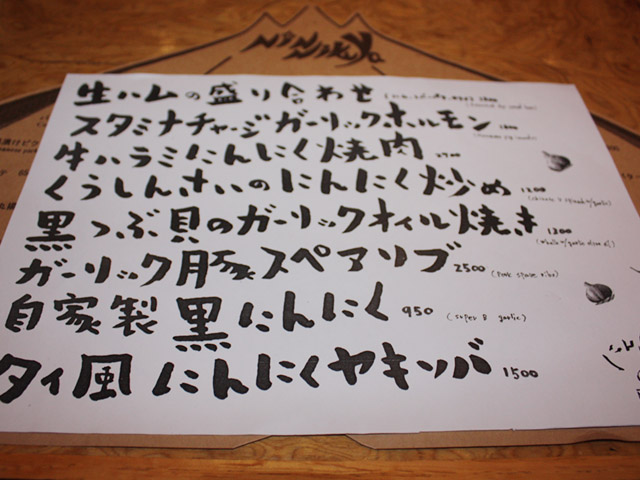 NiNNiKUYA
生ハムの盛り合わせ
スタミナチャージガーリックホルモン
牛ハラミにんにく焼肉
くうしんさいのにんにく炒め 1200
黒つぶ貝のガーリックオイル焼き 1300
ガーリック豚スペアリブ 2500 (Pork spare ribs)
自家製黒にんにく 950 (super B garlic)
タイ風にんにくヤキソバ 1500